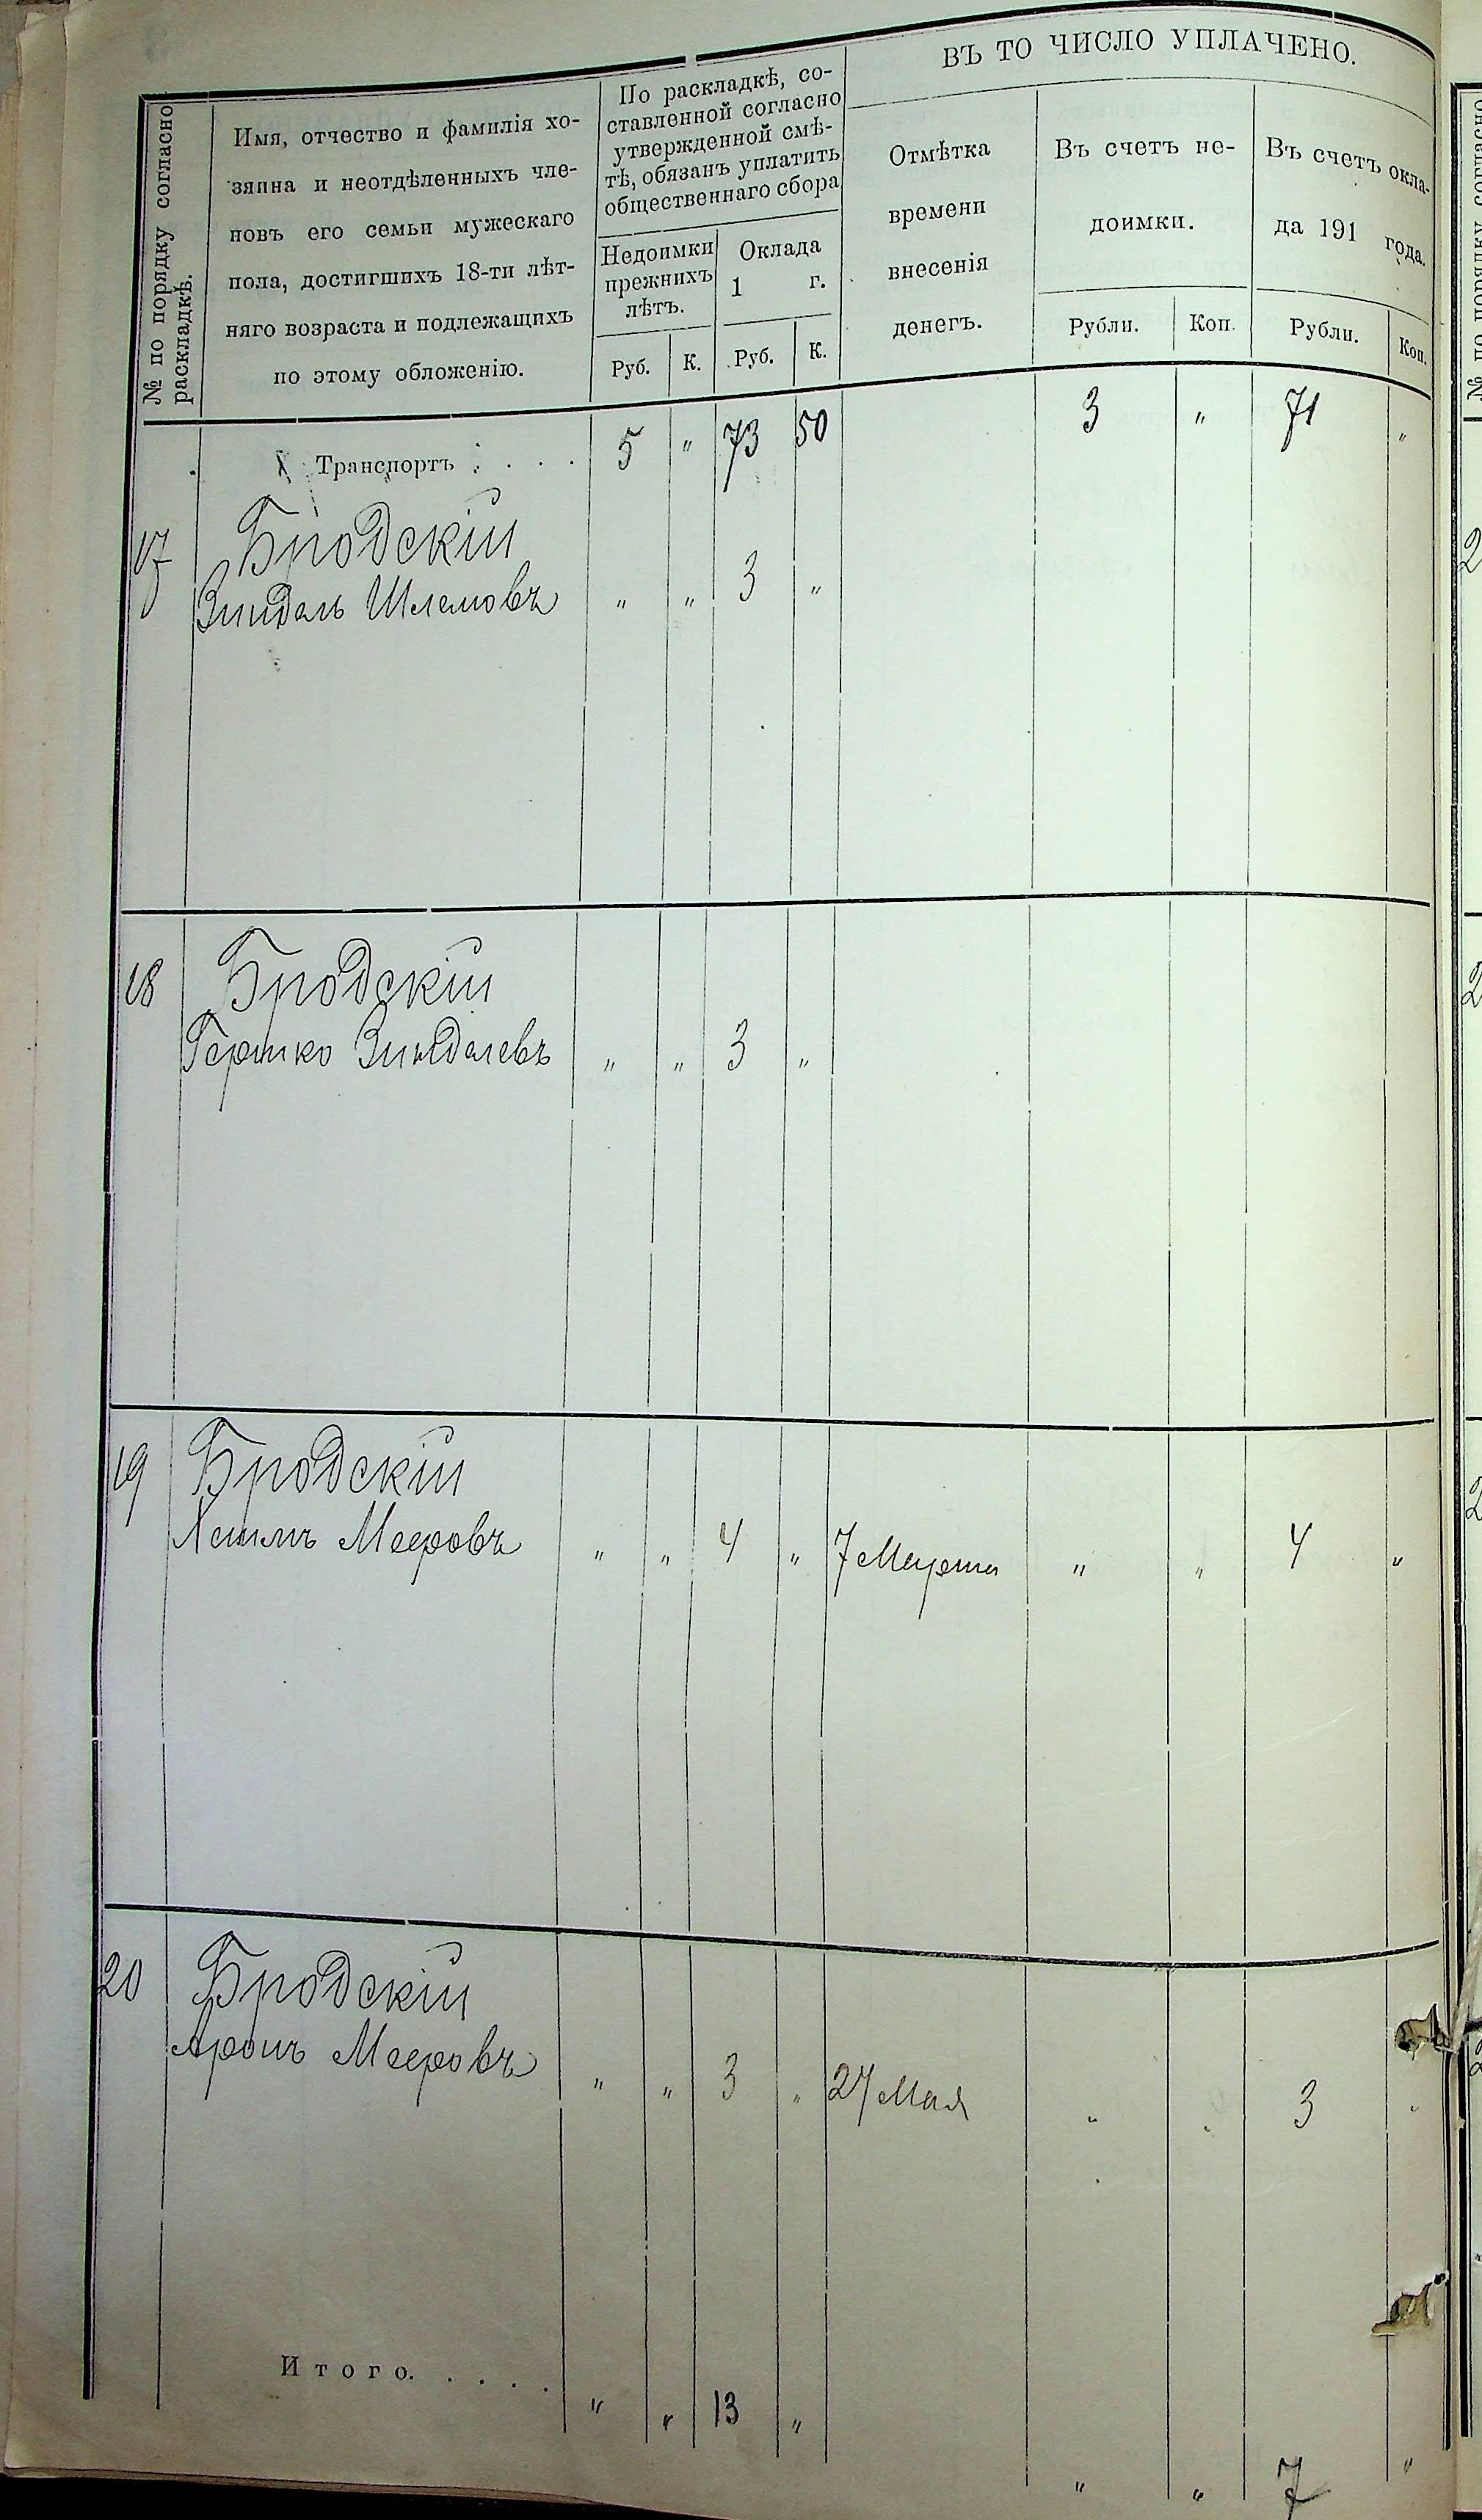 № по порядку согласно
раскладкѣ.
Имя, отчество и фамилія хо-
зяина и неотдѣленныхъ чле-
новъ его семьи мужескаго
пола, достигшихъ 18-ти лѣт-
няго возраста и подлежащихъ
по этому обложенію.
По раскладкѣ, со-
ставленной согласно
утвержденной смѣ-
тѣ, обязанъ уплатить
общественнаго сбора
Недоимки
прежнихъ
лѣтъ.
Оклада
1 г.
Руб. К. Руб. К.
ВЪ ТО ЧИСЛО УПЛАЧЕНО.
Отмѣтка
времени
внесенія
денегъ.
Въ счетъ не-
доимки.
Рубли. Коп.
Въ счетъ окла-
да 191 года.
Рубли. Коп.
Транспортъ . . . . 5 " 73 50 3 " 71 "
17 Бродскій
Зиндель Шлемовъ " " 3 "
18 Бродскій
Гершко Зинделевъ " " 3 "
19 Бродскій
Мееровъ " " 4 " 7 Марта " " 4 "
20 Бродскій
Аронъ Мееровъ " " 3 " 27 Мая " " 3 "
Итого. . . . . " " 13 " " " 7 "